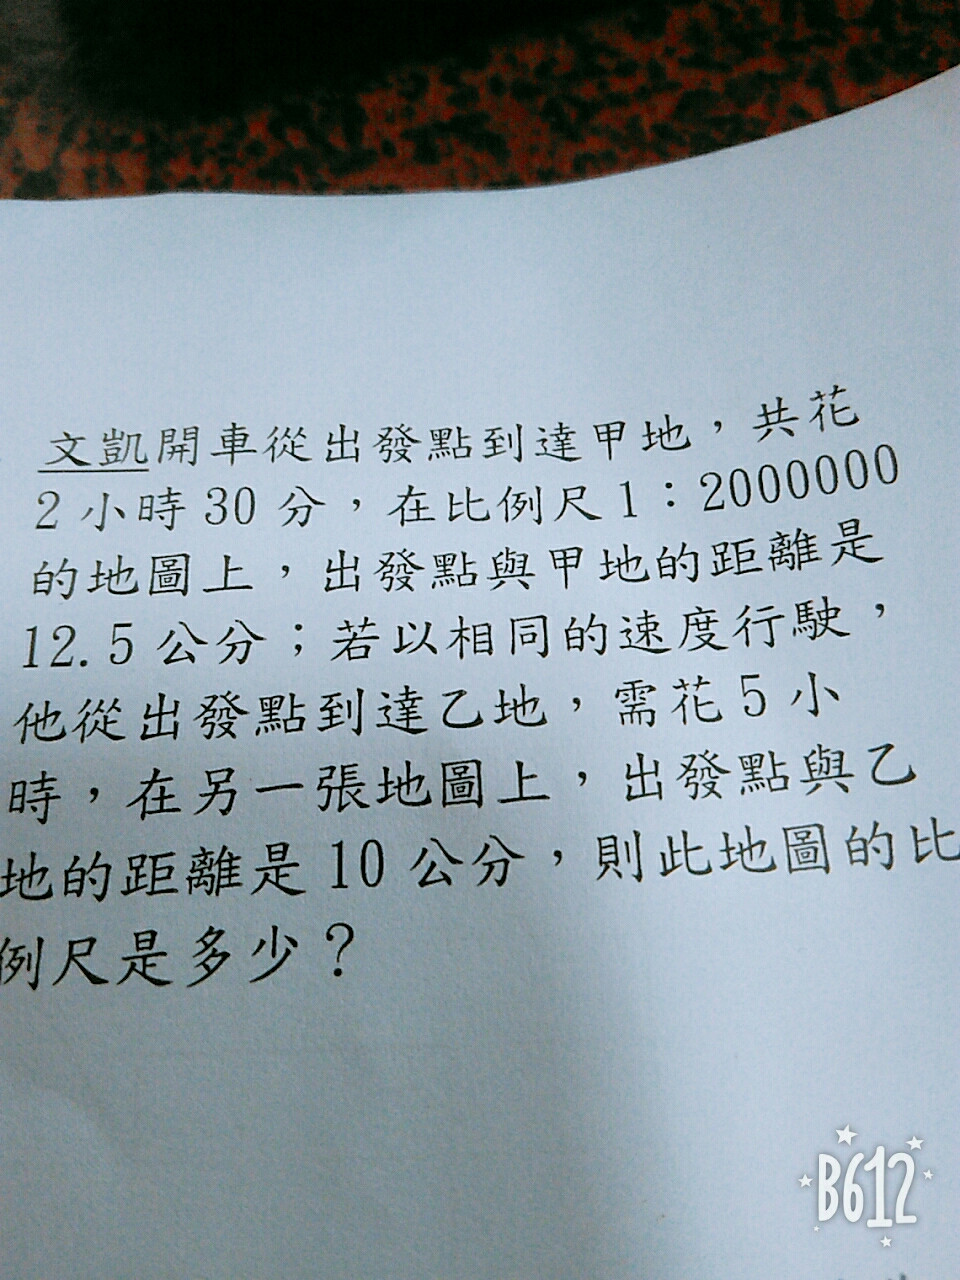 文凱開車從出發點到達甲地，共花
2小時30分，在比例尺1：2000000
的地圖上，出發點與甲地的距離是
12.5公分；若以相同的速度行駛，
他從出發點到達乙地，需花5小
時，在另一張地圖上，出發點與乙
地的距離是10公分，則此地圖的比
例尺是多少？
B612